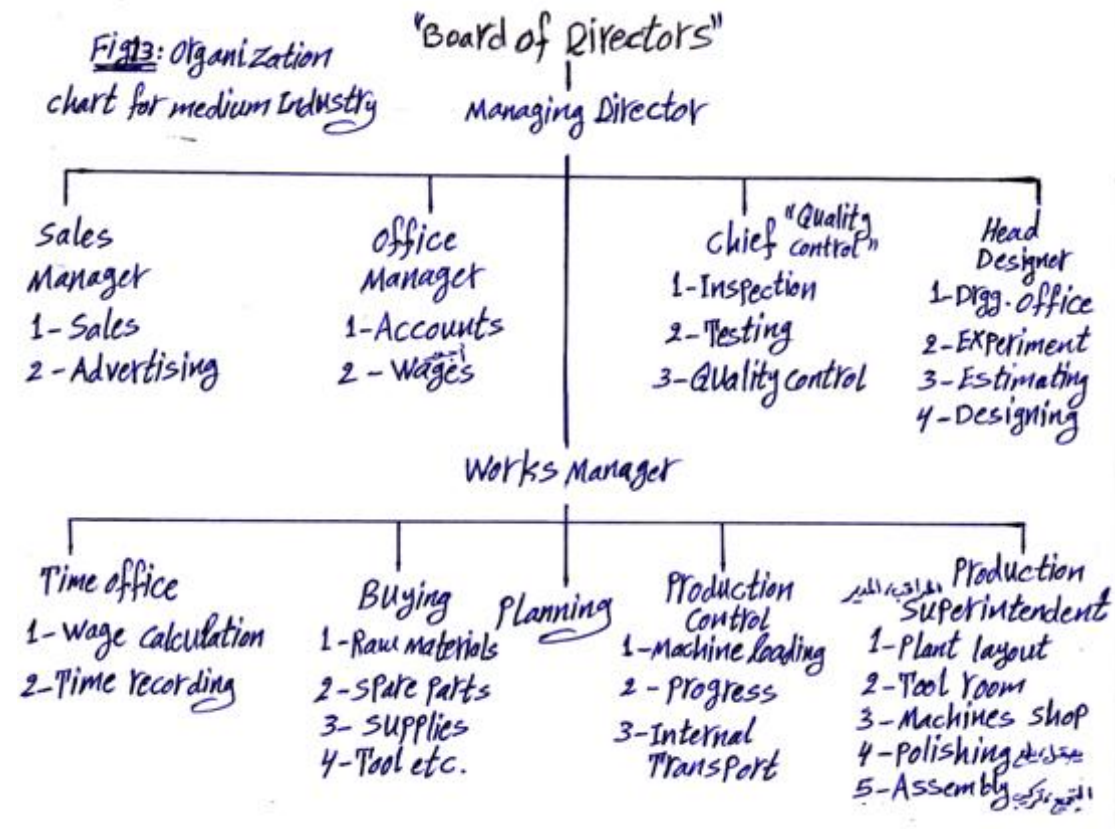 "Board of Directors"
Fig13: Organization
chart for medium Industry
Managing Director
Sales
Manager
1- Sales
2- Advertising
Office
Manager
1-Accounts
2- Wages
Chief "Quality
control"
1-Inspection
2-Testing
3-Quality control
Head
Designer
1-Drgg. office
2-Experiment
3-Estimating
4-Designing
Works Manager
Time office
1-Wage calculation
2-Time recording
Buying
1-Raw materials
2-Spare Parts
3- Supplies
4-Tool etc.
Planning
Production
Control
1-Machine loading
2- Progress
3-Internal
Transport
Production
Superintendent
1-Plant layout
2-Tool room
3-Machines shop
4-Polishing
5-Assembly